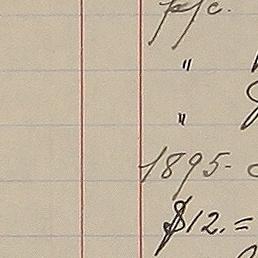 p/c.
"
"
1895-
$12.=